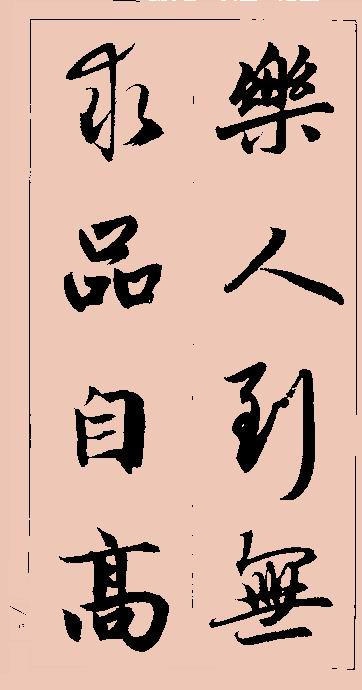 樂人到無
求品自高